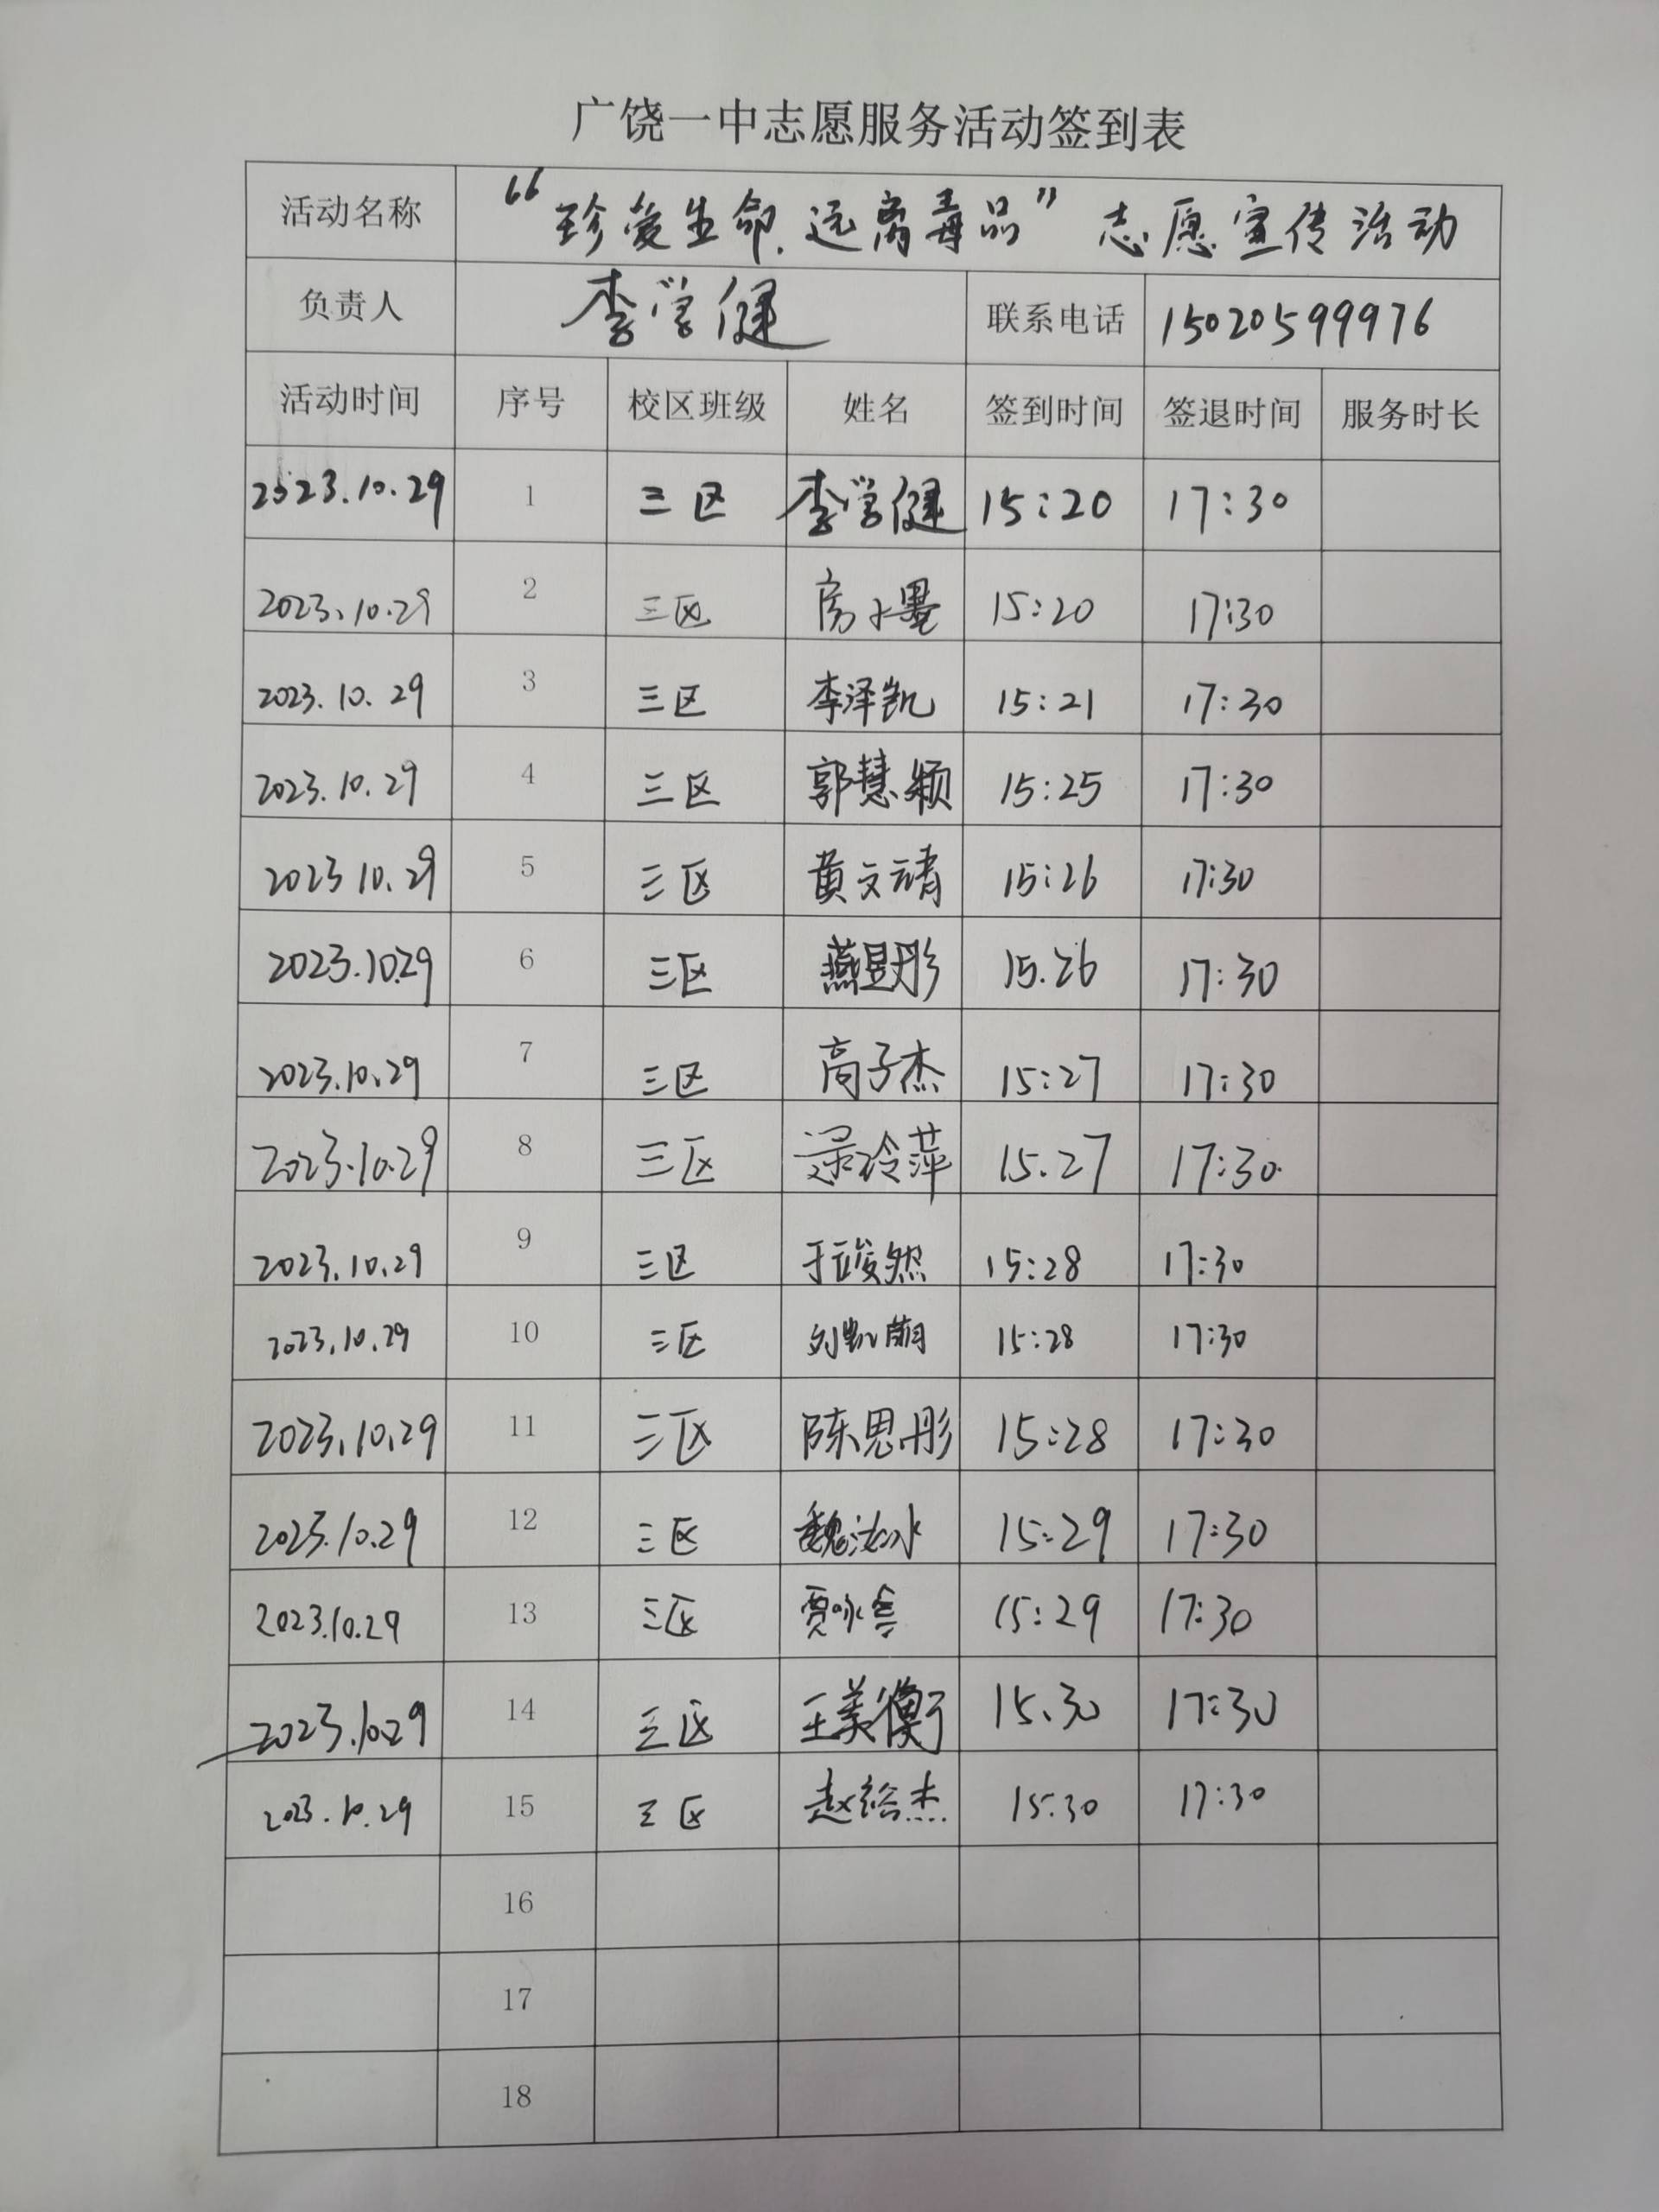 广饶一中志愿服务活动签到表
活动名称 “珍爱生命.远离毒品” 志愿宣传活动
负责人 李学健 联系电话 15020599976
活动时间 序号 校区班级 姓名 签到时间 签退时间 服务时长
2023.10.29 1 三区 李学健 15:20 17:30
2023.10.29 2 三区 房小墨 15:20 17:30
2023.10.29 3 三区 李泽凯 15:21 17:30
2023.10.29 4 三区 郭慧颖 15:25 17:30
2023 10.29 5 三区 黄文靖 15:26 17:30
2023.1029 6 三区 燕昱彤 15.26 17:30
2023.10.29 7 三区 高子杰 15:27 17:30
2023.10.29 8 三区 15.27 17:30
2023.10.29 9 三区 于竣然 15:28 17:30
2023.10.29 10 三区 15:28 17:30
2023.10.29 11 三区 陈思彤 15:28 17:30
2023.10.29 12 三区 魏汝冰 15:29 17:30
2023.10.29 13 三区 15:29 17:30
2023.1029 14 三区 王美衡 15.30 17:30
2023.10.29 15 三区 15:30 17:30
16
17
18